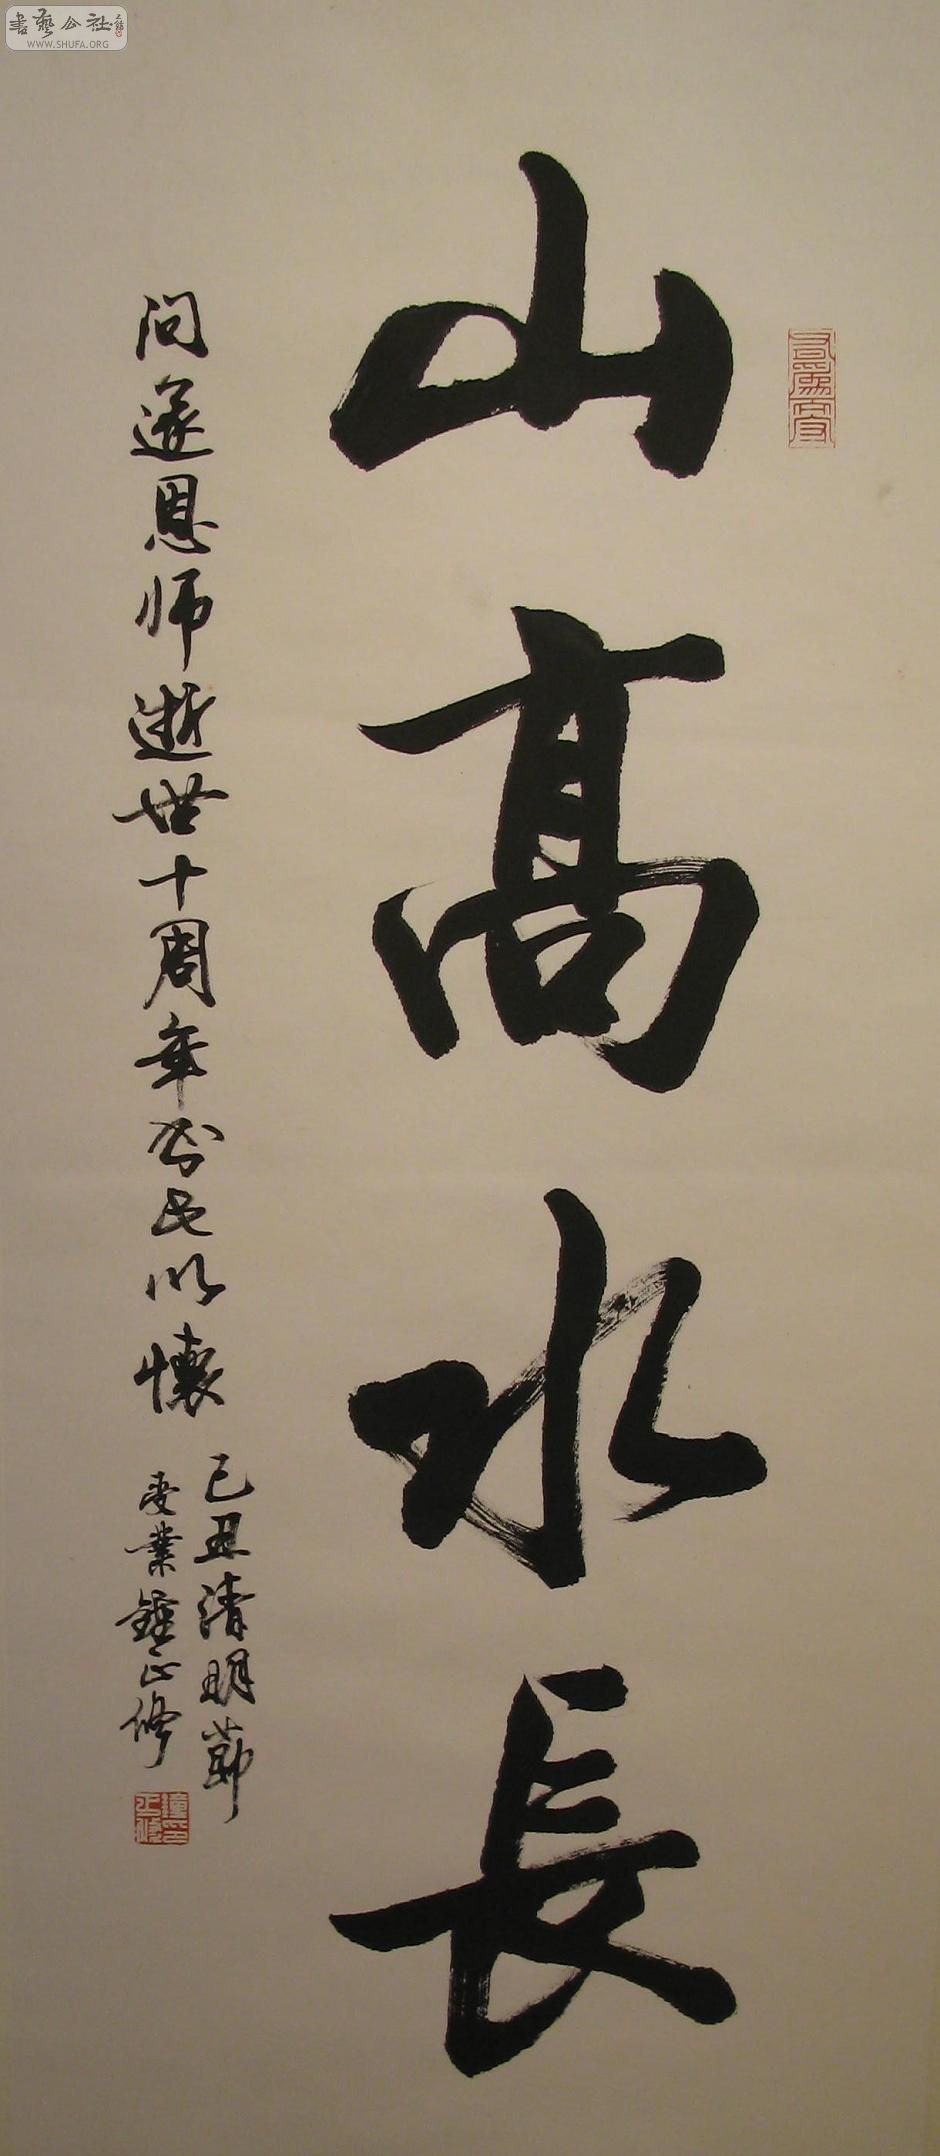 書藝公社
WWW.SHUFA.ORG
山高水長
问蘧恩师逝世十周年书此以懷
己丑清明節
受業鍾正修